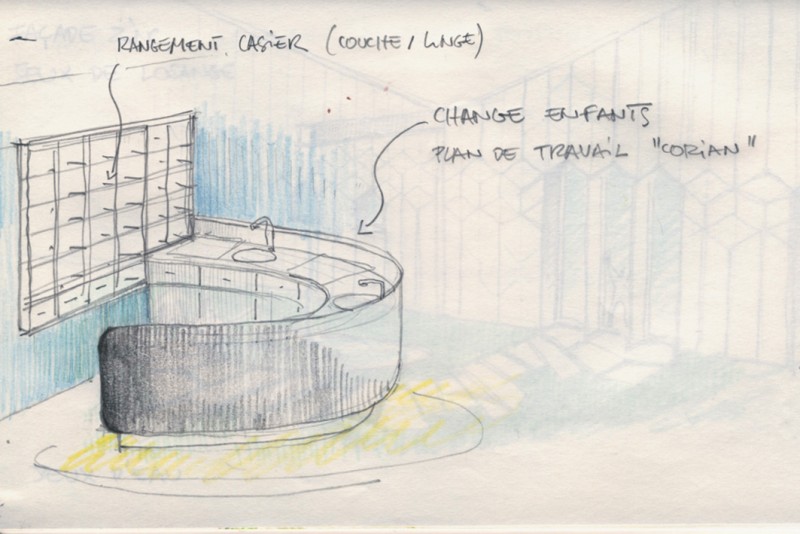 RANGEMENT CASIER (COUCHE / LINGE)
CHANGE ENFANTS
PLAN DE TRAVAIL "CORIAN"